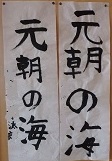 元朝の海
元朝の海